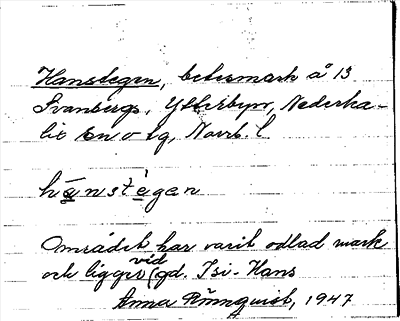 Hanstegen, betesmark å 13
Svanbergs, Ytterbyn, Nederka-
lix sn o tg, Norrb. l.
hanstegen
Området har varit odlad mark
och ligger vid gd. Isi-Hans
Anna Rönnquist, 1947